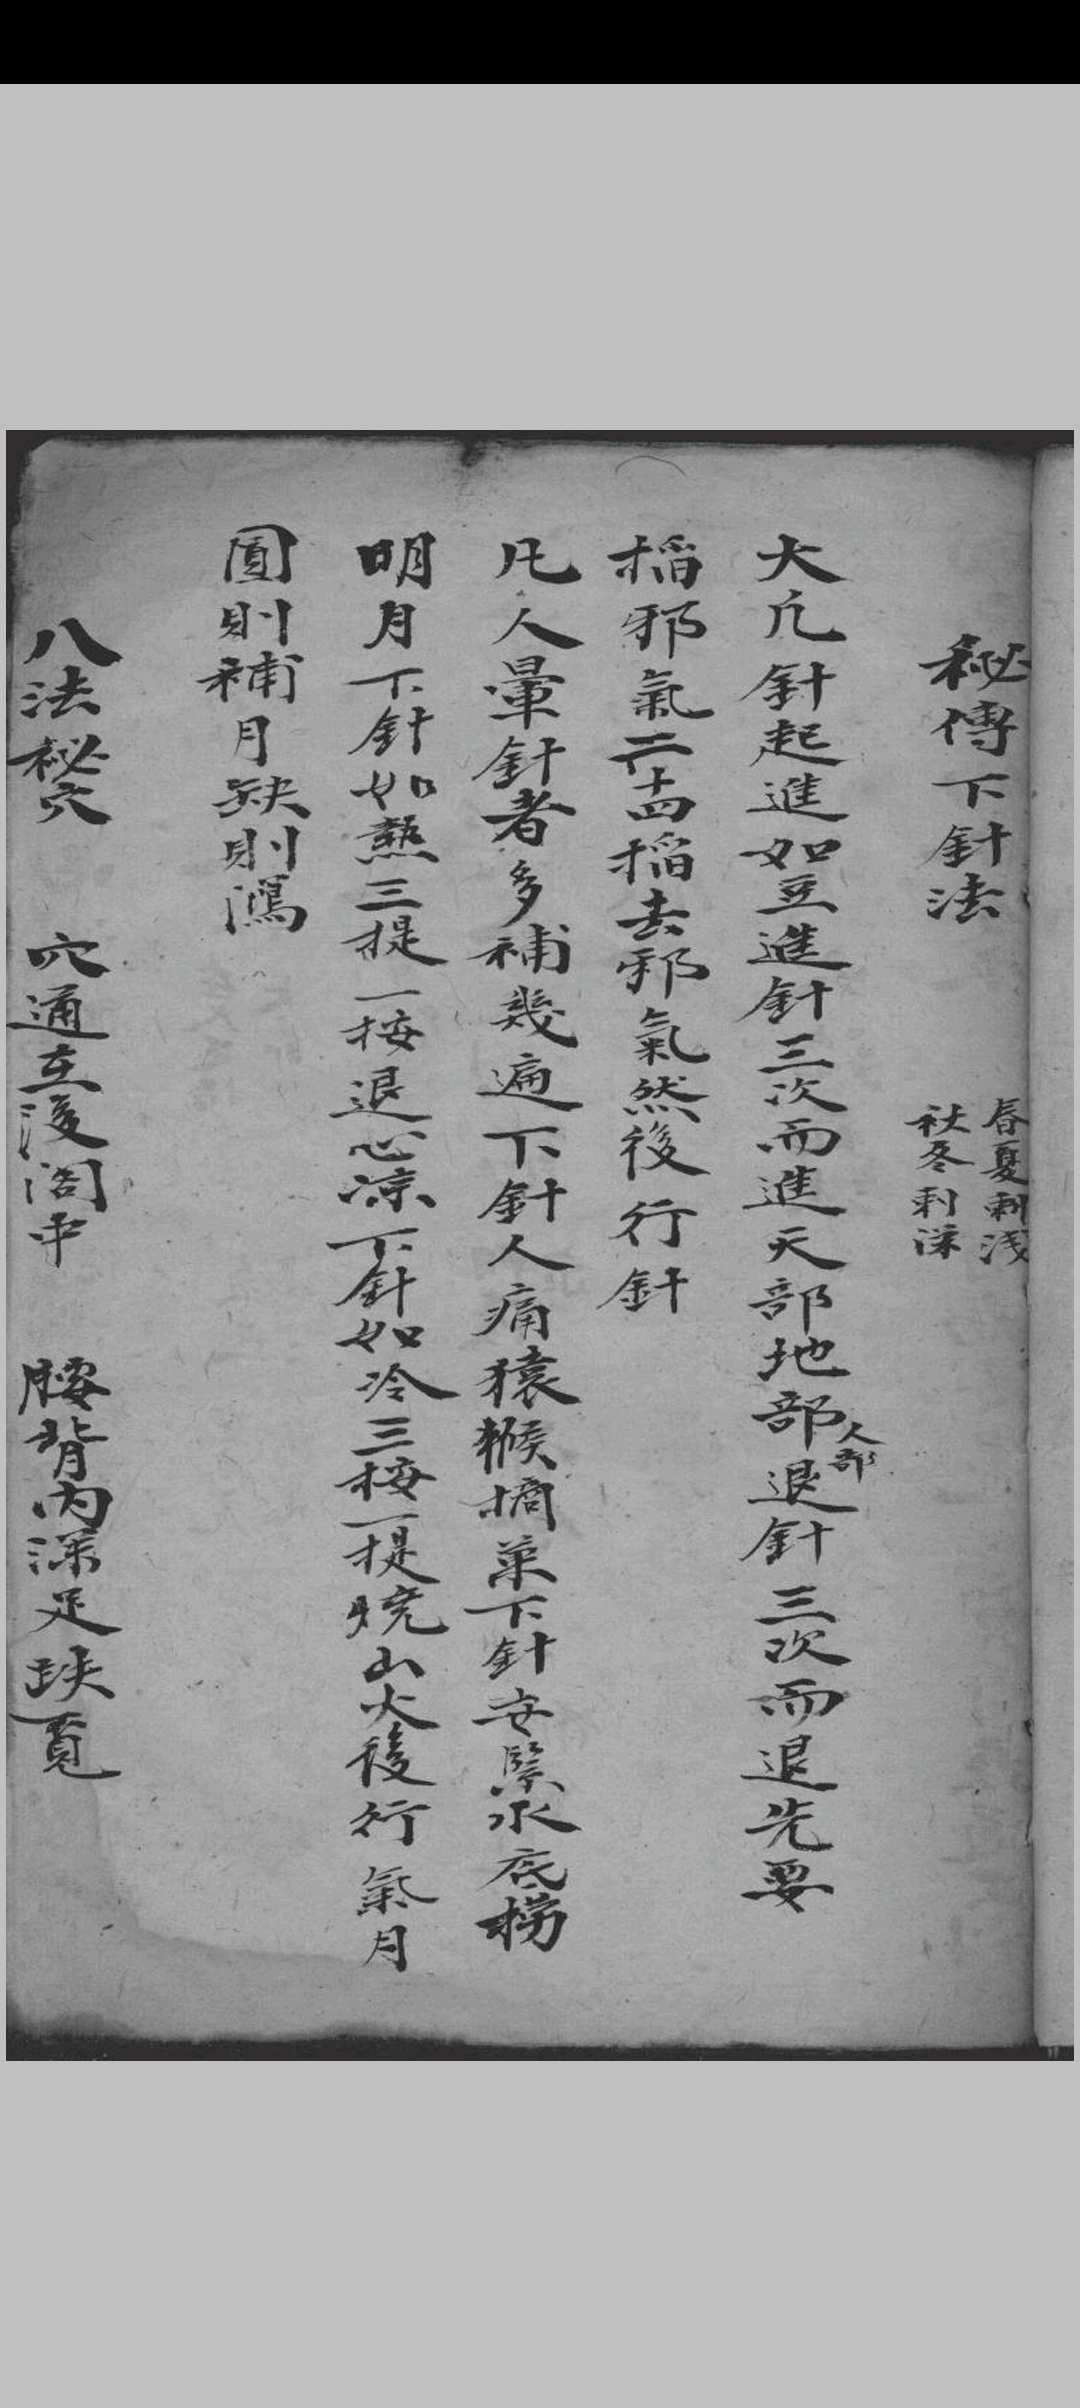 秘傳下針法 春夏刺淺
秋冬刺深
大凡針起進如豆進針三次而進天部地部人部退針三次而退先要
稲邪氣二十四稲去邪氣然後行針
凡人暈針者多補幾遍下針人痛猿猴摘菓下針安緊水底撈
明月下針如熱三提一按退心凉下針如冷三按一提燒山火後行氣月
圓則補月缺則瀉
八法秘穴 穴通在後閣中 腰背內深足